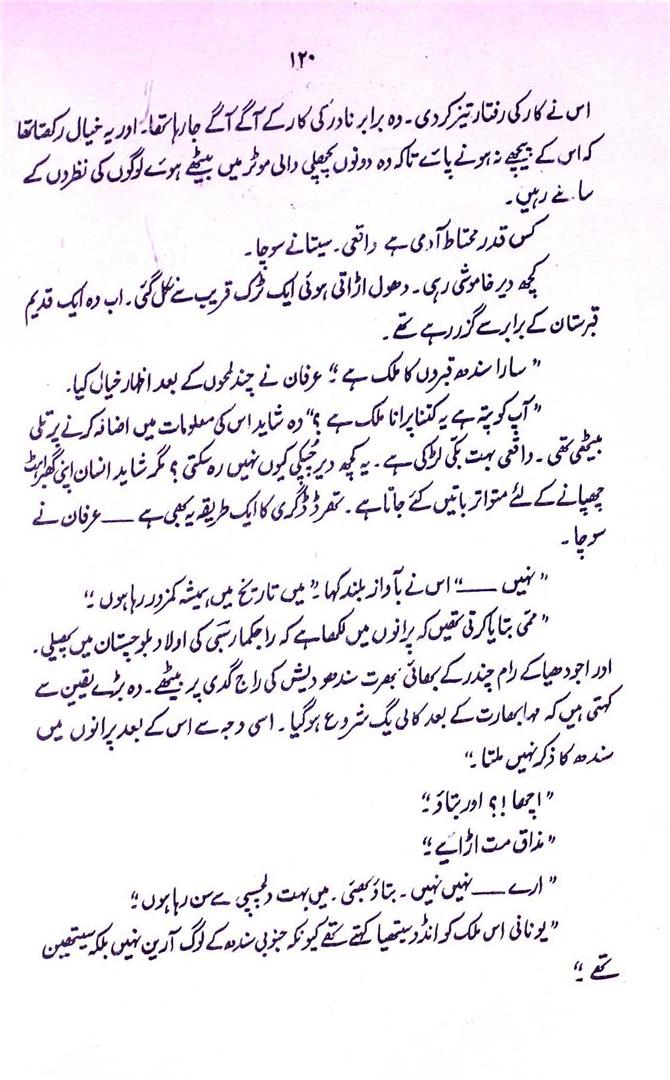 ۱۲۰
اس نے کار کی رفتار تیز کر دی۔ وہ برابر نادر کی کار کے آگے آگے جا رہا تھا۔ اور یہ خیال رکھتا تھا
کہ اس کے پیچھے نہ ہونے پائے تاکہ وہ دونوں پچھلی والی موٹر میں بیٹھے ہوئے لوگوں کی نظروں کے
سامنے رہیں۔
کس قدر محتاط آدمی ہے واقعی۔ سیتا نے سوچا۔
کچھ دیر خاموشی رہی۔ دھول اڑاتی ہوئی ایک ٹرک قریب سے نکل گئی۔ اب وہ ایک قدیم
قبرستان کے برابر سے گزر رہے تھے۔
”سارا سندھ قبروں کا ملک ہے“ عرفان نے چند لمحوں کے بعد اظہار خیال کیا۔
”آپ کو پتہ ہے یہ کتنا پرانا ملک ہے؟“ وہ شاید اس کی معلومات میں اضافہ کرنے پر تلی
بیٹھی تھی۔ واقعی بہت بکی لڑکی ہے۔ یہ کچھ دیر چپکی کیوں نہیں رہ سکتی؟ مگر شاید انسان اپنی گھبراہٹ
چھپانے کے لئے متواتر باتیں کئے جاتا ہے۔ تھرڈ ڈگری کا ایک طریقہ یہ بھی ہے —— عرفان نے
سوچا۔
”نہیں ——“ اس نے بآواز بلند کہا۔ ”میں تاریخ میں ہمیشہ کمزور رہا ہوں۔“
”ممی بتایا کرتی تھیں کہ پرانوں میں لکھا ہے کہ راجکمار سبی کی اولاد بلوچستان میں پھیلی۔
اور اجودھیا کے رام چندر کے بھائی بھرت سندھو دیش کی راج گدی پر بیٹھے۔ وہ بڑے یقین سے
کہتی ہیں کہ مہابھارت کے بعد کالی یگ شروع ہو گیا۔ اسی وجہ سے اس کے بعد پرانوں میں
سندھ کا ذکر نہیں ملتا۔“
”اچھا!؟ اور بتاؤ۔“
”مذاق مت اڑائیے۔“
”ارے —— نہیں نہیں۔ بتاؤ بھئی۔ میں بہت دلچسپی سے سن رہا ہوں۔“
”یونانی اس ملک کو انڈو سیتھیا کہتے تھے کیونکہ جنوبی سندھ کے لوگ آرین نہیں بلکہ سیتھین
تھے۔“